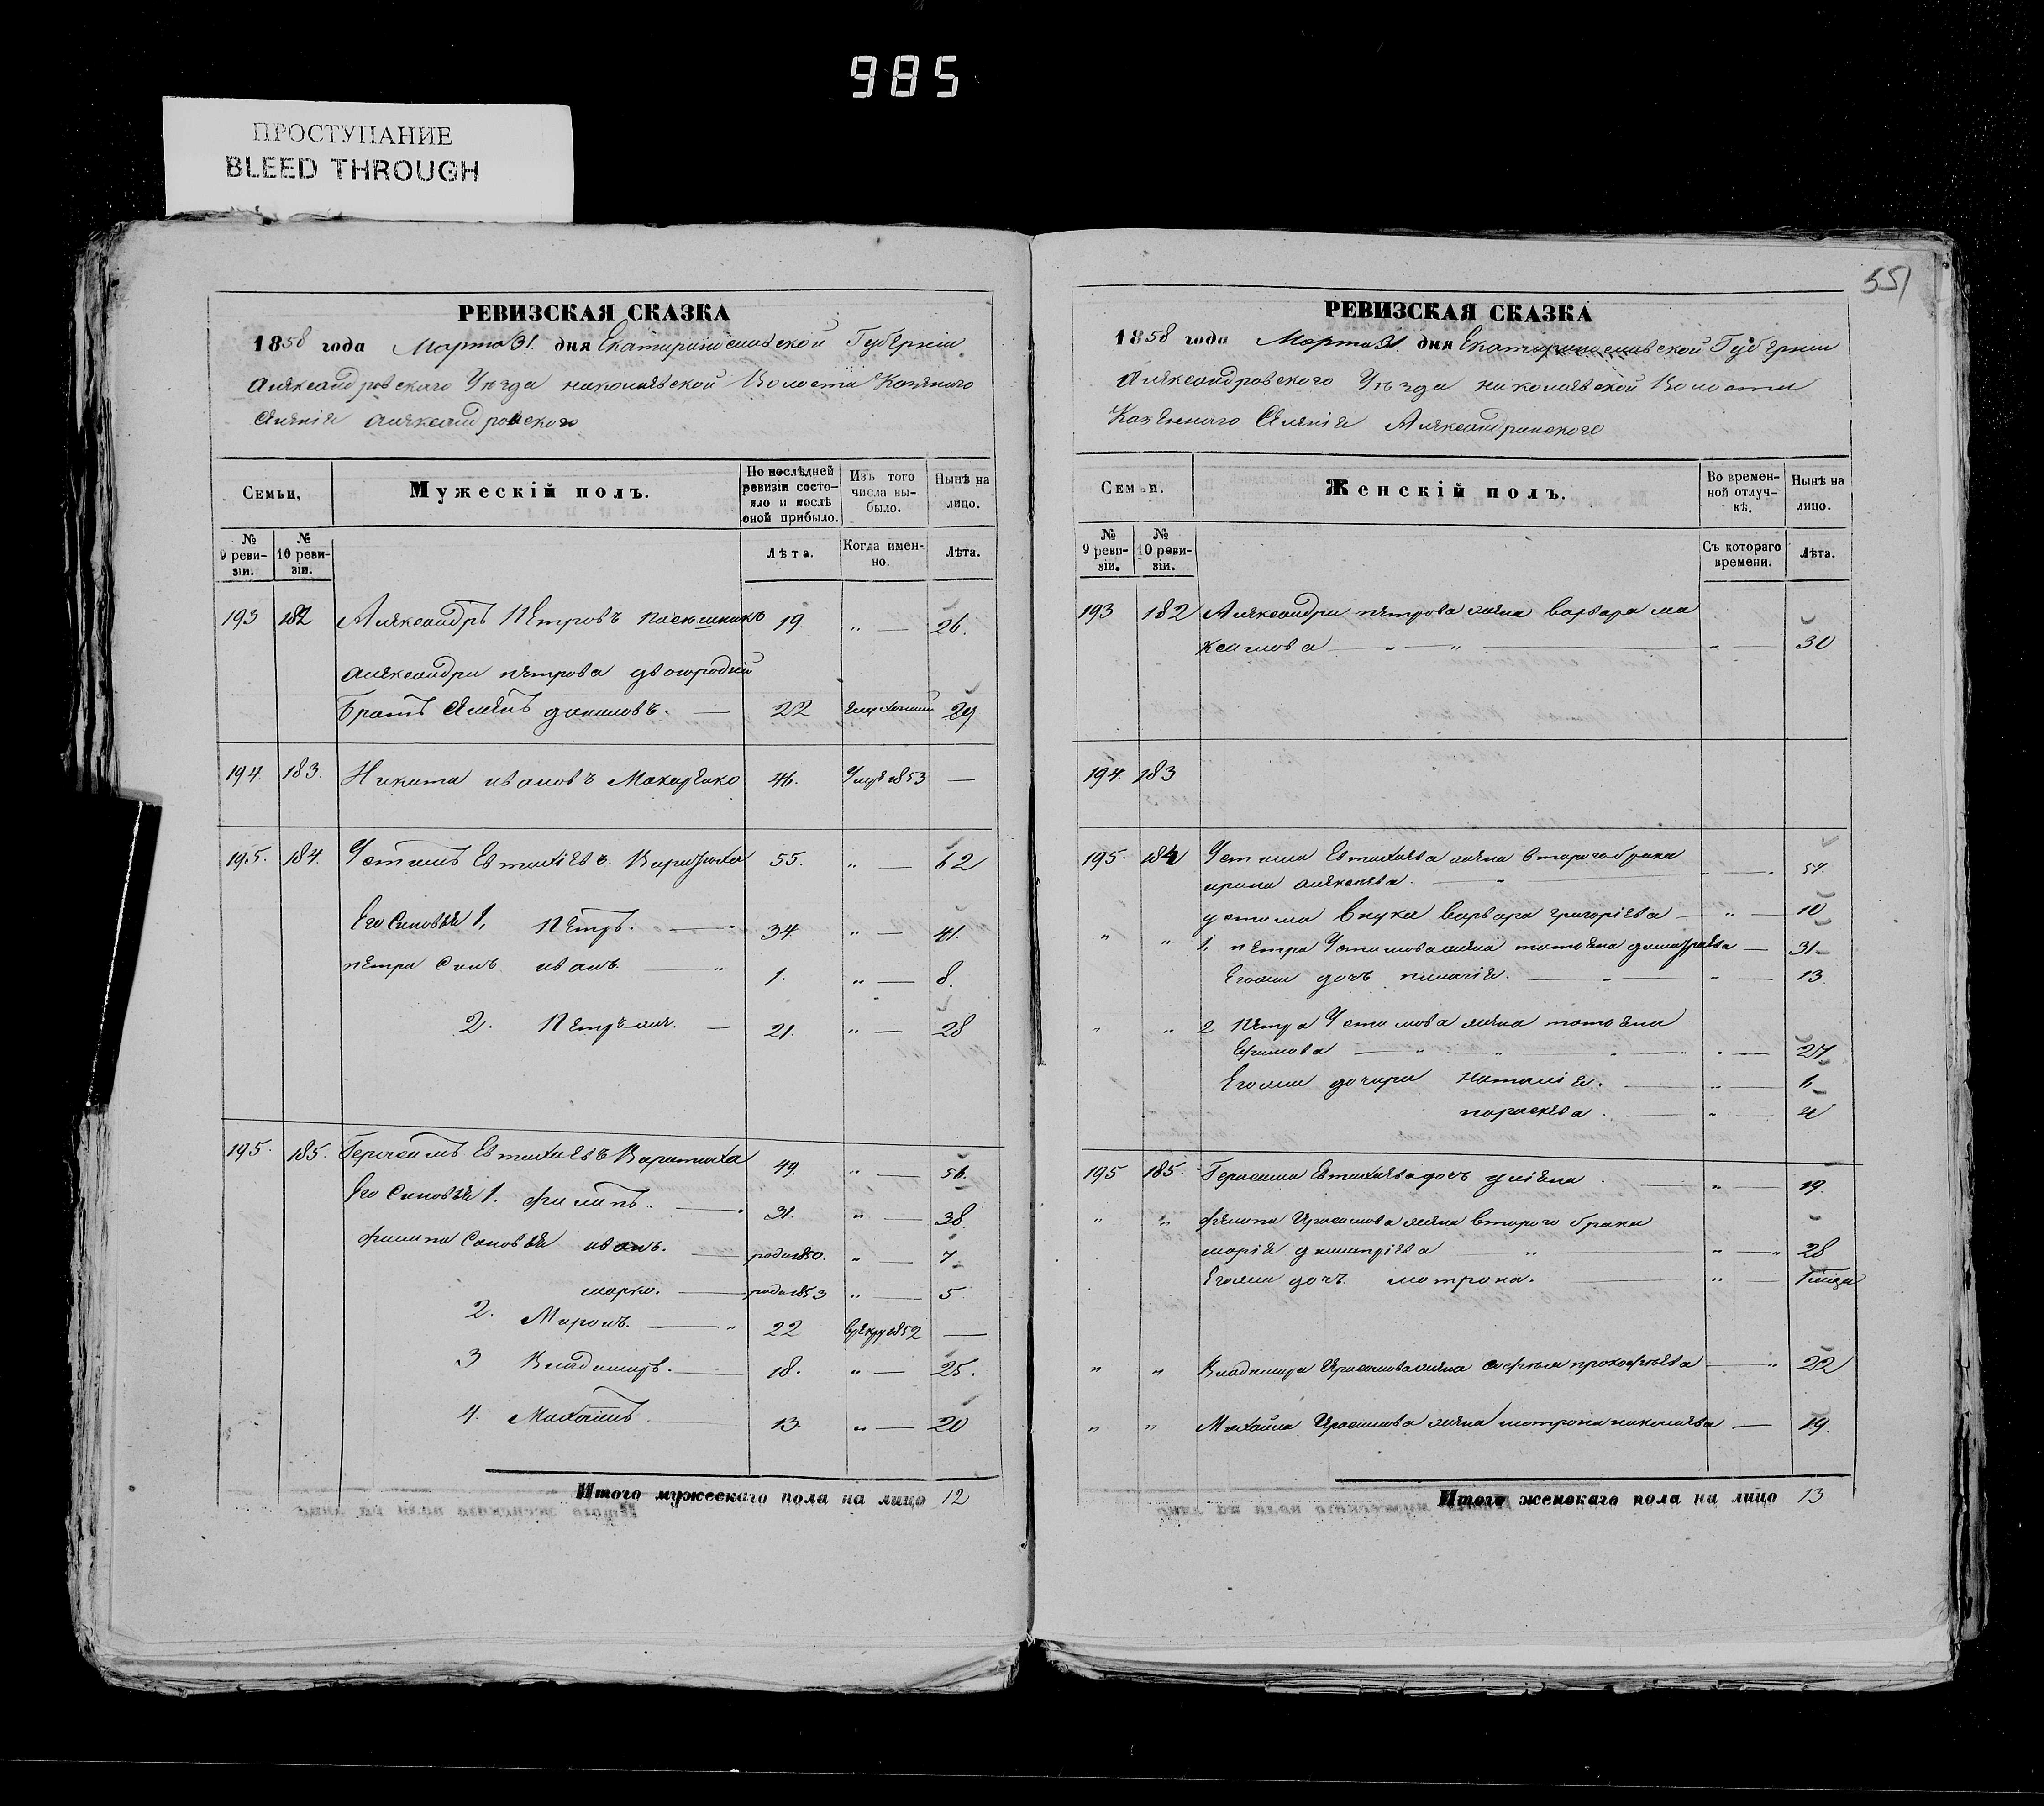 985
ПРОСТУПАНИЕ
BLEED THROUGH
РЕВИЗСКАЯ СКАЗКА
1858 года Марта 31. дня Екатиринославской Губернии
Александровского Уезда николаевской Волости Казенного
Селенія александровского
Семьи,
Мужескій полъ.
По послѣдней ревизіи состо-
яло и послѣ оной прибыло.
Изъ того числа вы-
было.
Нынѣ на лицо.
№ 9 реви-
зіи.
№ 10 реви-
зіи.
Лѣта.
Когда имен-
но.
Лѣта.
193 182 Александръ Петровъ 19. „ — 26.
александри петрова двоюродній
Братъ Семенъ даниловъ. — 22 29
194. 183. Никита ивановъ Макаренко 46. Умре 1853 —
195. 184. Устимъ Евтихіевъ. 55. „ — 62
Его Синовья 1, Петръ. — 34. „ — 41.
петра Синъ иванъ. — „ 1. „ — 8.
2. Петръ — 21. „ — 28
195. 185. Герасимъ Евтихіевъ 49. „ — 56.
Его Синовья 1. филипъ. — 31. „ — 38.
филипа Синовья иванъ. — роди 1850. „ — 7
марко. — роди 1853 „ — 5
2. Миронъ. — „ 22 1852 —
3 Владимиръ. — 18. „ — 25.
4. Михаилъ — 13. „ — 20
Итого мужескаго пола на лицо 12
551
РЕВИЗСКАЯ СКАЗКА
1858 года Марта 31. дня Екатиринославской Губернии
Александровского Уезда николаевской Волости
Казенного Селенія Александринского
Семьи.
Женскій полъ.
Во времен-
ной отлуч-
кѣ.
Нынѣ на лицо.
№ 9 реви-
зіи.
№ 10 реви-
зіи.
Съ котораго времени.
Лѣта.
193 182 Александри петрова жена варвара ма
ксимова — „ — „ — „ — 30
194. 183
195. 184 Устима Евтихіева жена второго брака
ирина алексеева. — „ — 57.
устима внука варвара григоріева — „ — 10
„ „ 1. петра Устимова жена татьяна — 31
Егоже дочъ пелагія. — „ — „ — 13
„ „ 2 Петра Устимова жена татьяна
Ефимова — „ — „ — „ — 27
Егоже дочери наталія. — „ — 6
параскева. — „ —
195 185. Герасима Евтихіева дочъ уліяна — „ — 19.
„ „ филипа Ирасимова жена второго брака
марія дмитріева „ — „ — 28
Егоже дочъ матрона. — „ —
„ „ Владимира Ирасимова жена софья прокофьева — „ 22
„ „ Михаила Ирасимова жена матрона николаева — 19.
Итого женскаго пола на лицо 13